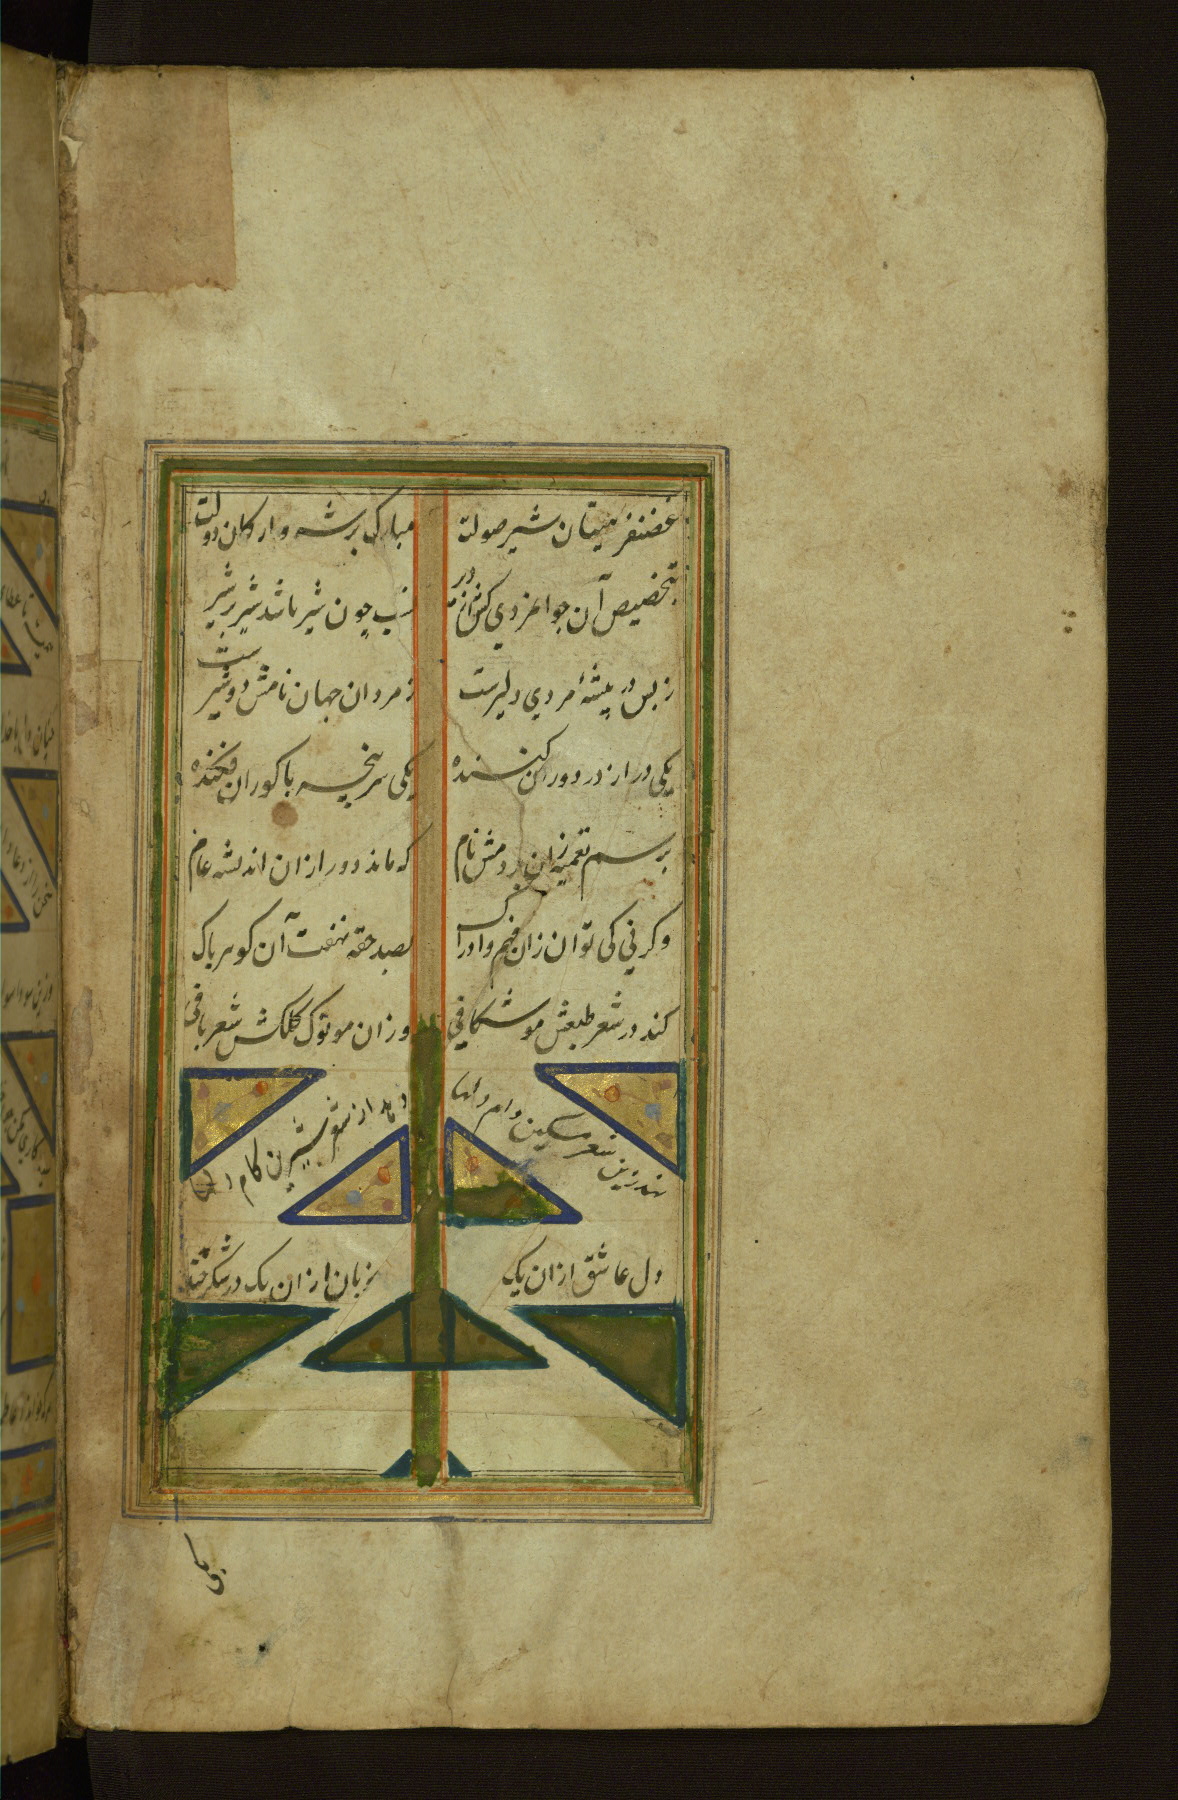 غضنفر هیبتان شیر صولت
مبارک بر شه و ارکان دولت
بتخصیص آن جوانمردی کش از در
نسب چون شیر باشد شیر بر شیر
ز بس در بیشهٔ مردی دلیرست
ز مردان جهان نامش دو شیرست
یکی در از در دوران کننده
یکی سر پنجه با کوران فکنده
برسم تعمیه زان بردمش نام
که ماند دور از ان اندیشه عام
وگرنی کی توان زان فهم و ادراک
بصد حقه نهفت آن کوهر پاک
کند در شعر طبعش موشکافی
وزان مو نوک کلکش شعربافی
نهد زین شعر مشکین دام دلها
دهد از شعر شیرین کام دلها
دل عاشق از ان یک
زبان از ان یک در شکر خند
یکی